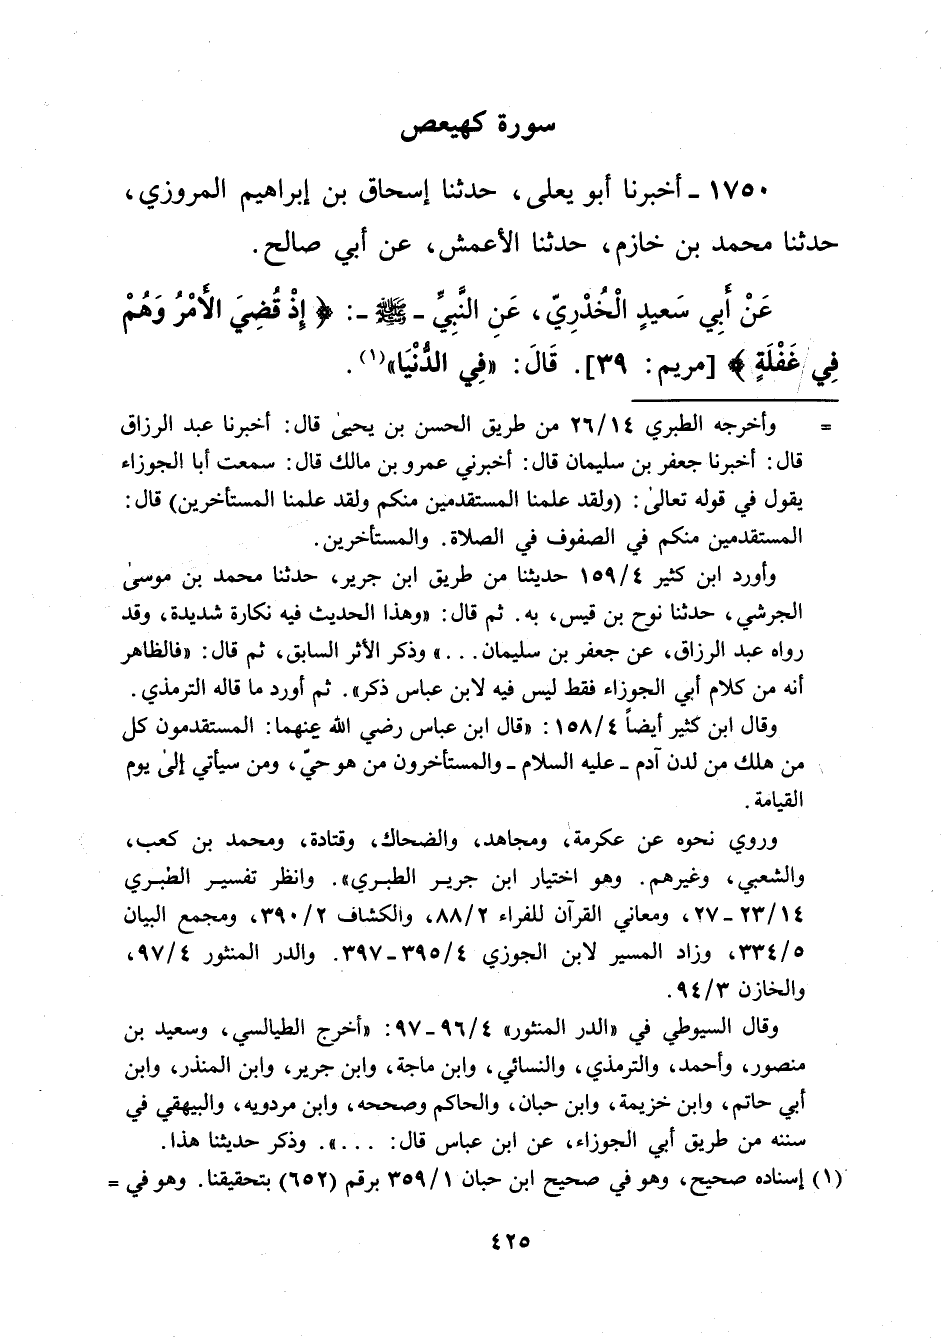 سورة كهيعص
١٧٥٠ ـ أخبرنا أبو يعلى، حدثنا إسحاق بن إبراهيم المروزي،
حدثنا محمد بن خازم، حدثنا الأعمش، عن أبي صالح.
عَنْ أَبِي سَعيدٍ الْخُدْرِيّ، عَنِ النَّبِيِّ ـ ﷺ ـ: ﴿ إِذْ قُضِيَ الأَمْرُ وَهُمْ
فِي غَفْلَةٍ ﴾ [مريم: ٣٩]. قَالَ: «فِي الدُّنْيَا»(١).
= وأخرجه الطبري ٢٦/١٤ من طريق الحسن بن يحيىٰ قال: أخبرنا عبد الرزاق
قال: أخبرنا جعفر بن سليمان قال: أخبرني عمرو بن مالك قال: سمعت أبا الجوزاء
يقول في قوله تعالىٰ: (ولقد علمنا المستقدمين منكم ولقد علمنا المستأخرين) قال:
المستقدمين منكم في الصفوف في الصلاة. والمستأخرين.
وأورد ابن كثير ١٥٩/٤ حديثنا من طريق ابن جرير، حدثنا محمد بن موسىٰ
الجرشي، حدثنا نوح بن قيس، به. ثم قال: «وهذا الحديث فيه نكارة شديدة، وقد
رواه عبد الرزاق، عن جعفر بن سليمان...» وذكر الأثر السابق، ثم قال: «فالظاهر
أنه من كلام أبي الجوزاء فقط ليس فيه لابن عباس ذكر». ثم أورد ما قاله الترمذي.
وقال ابن كثير أيضاً ١٥٨/٤: «قال ابن عباس رضي الله عنهما: المستقدمون كل
من هلك من لدن آدم ـ عليه السلام ـ والمستأخرون من هو حيّ، ومن سيأتي إلىٰ يوم
القيامة.
وروي نحوه عن عكرمة، ومجاهد، والضحاك، وقتادة، ومحمد بن كعب،
والشعبي، وغيرهم. وهو اختيار ابن جرير الطبري». وانظر تفسير الطبري
٢٣/١٤ ـ ٢٧، ومعاني القرآن للفراء ٨٨/٢، والكشاف ٣٩٠/٢، ومجمع البيان
٣٣٤/٥، وزاد المسير لابن الجوزي ٣٩٥/٤ ـ ٣٩٧. والدر المنثور ٩٧/٤،
والخازن ٩٤/٣.
وقال السيوطي في «الدر المنثور» ٩٦/٤ ـ ٩٧: «أخرج الطيالسي، وسعيد بن
منصور، وأحمد، والترمذي، والنسائي، وابن ماجة، وابن جرير، وابن المنذر، وابن
أبي حاتم، وابن خزيمة، وابن حبان، والحاكم وصححه، وابن مردويه، والبيهقي في
سننه من طريق أبي الجوزاء، عن ابن عباس قال: ...». وذكر حديثنا هذا.
(١) إسناده صحيح، وهو في صحيح ابن حبان ٣٥٩/١ برقم (٦٥٢) بتحقيقنا. وهو في =
٤٢٥